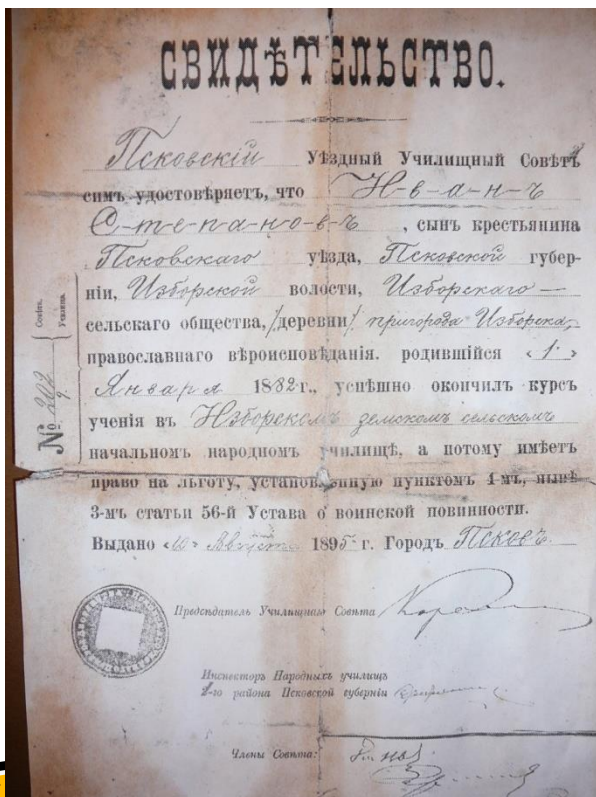 СВИДѢТЕЛЬСТВО.
Псковскій Уѣздный Училищный Совѣтъ
симъ удостовѣряетъ, что И-в-а-н-ъ
С-т-е-п-а-н-о-в-ъ, сын крестьянина
Псковскаго уѣзда, Псковской губер-
ніи, Изборской волости, Изборскаго —
сельскаго общества, /деревни/ пригорода Изборска,
православнаго вѣроисповѣданія. родившійся «1»
Января 1882 г., успѣшно окончил курсъ
ученія въ Изборском земском сельскомъ
начальномъ народномъ училищѣ, а потому имѣетъ
право на льготу, установленную пунктомъ 4-мъ, нынѣ
3-мъ статьи 56-й Устава о воинской повинности.
Выдано «10» Августа 1895 г. Городъ Псковъ.
Совѣта.
Училища.
№ 202
9.
Предсѣдатель Училищнаго Совѣта
Инспекторъ Народныхъ училищъ
1-го района Псковской губерніи
Члены Совѣта: